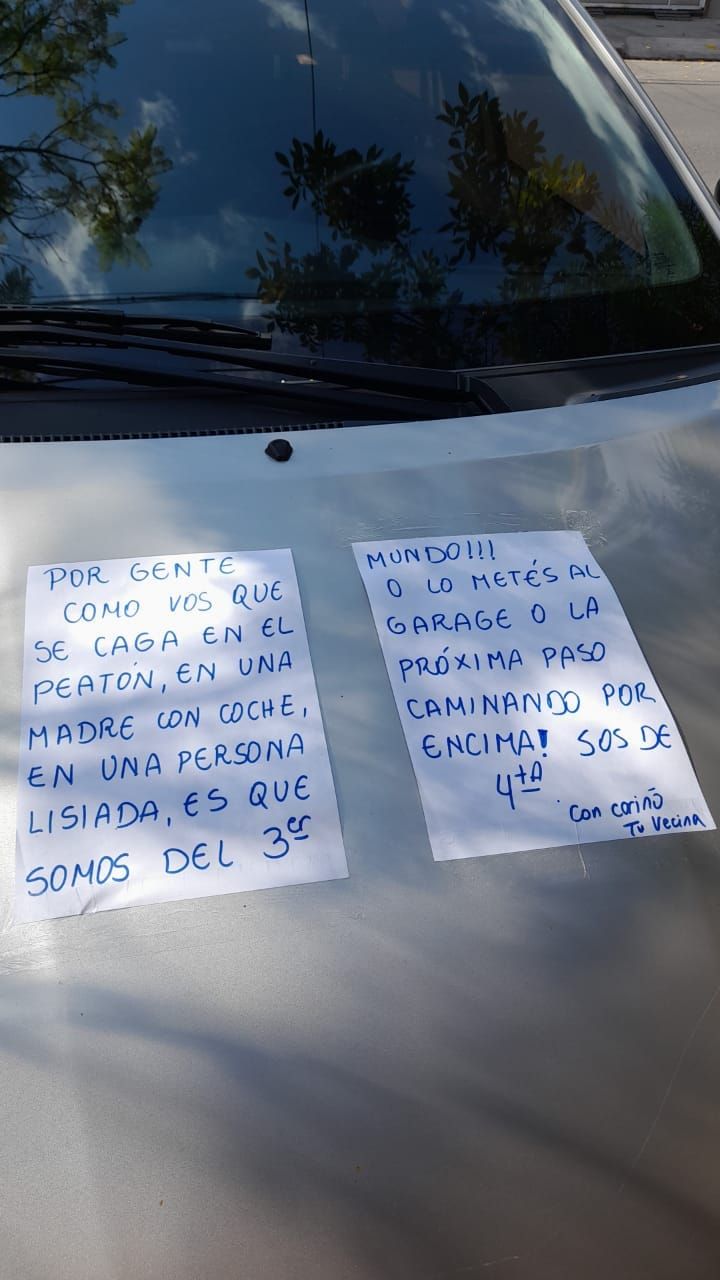 POR GENTE
COMO VOS QUE
SE CAGA EN EL
PEATÓN, EN UNA
MADRE CON COCHE,
EN UNA PERSONA
LISIADA, ES QUE
SOMOS DEL 3er
MUNDO!!!
O LO METÉS AL
GARAGE O LA
PRÓXIMA PASO
CAMINANDO POR
ENCIMA! SOS DE
4tA
Con cariño
Tu Vecina